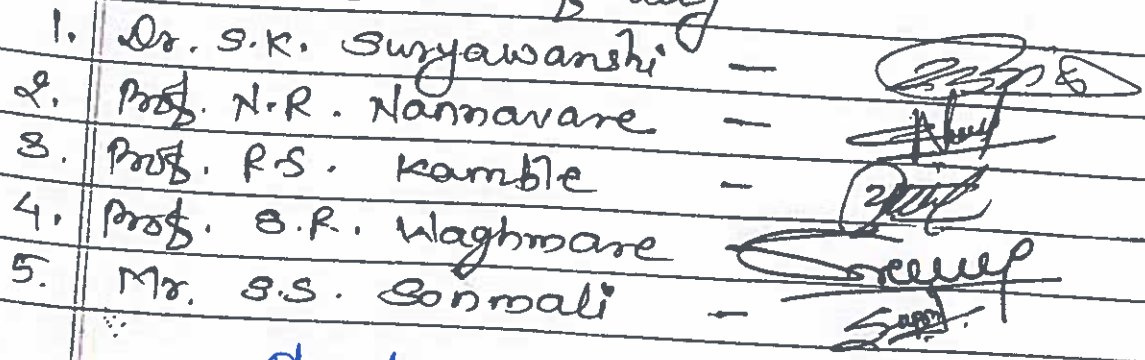 1. Dr. S.K. Suryawanshi —
2. Prof. N.R. Nannavare —
3. Prof. R.S. Kamble —
4. Prof. S.R. Waghmare
5. Mr. S.S. Sonmali —